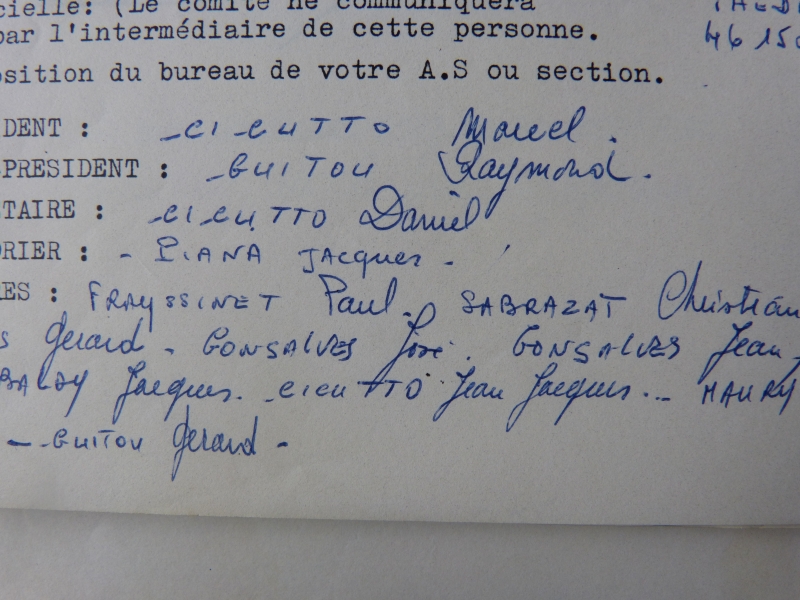 cielle: (Le comité ne communiquera
par l'intermédiaire de cette personne. 46 150
osition du bureau de votre A.S ou section.
DENT : - CICUTTO Marcel.
PRESIDENT : - GUITOU Raymond.
TAIRE : - CICUTTO Daniel
ORIER : - PIANA Jacques -
RES : FRAYSSINET Paul - SABRAZAT Christian
s Gérard - GONSALVES José. GONSALVES Jean-
BALDY Jacques. - CICUTTO Jean Jacques - MAURY
- GUITOU Gérard -